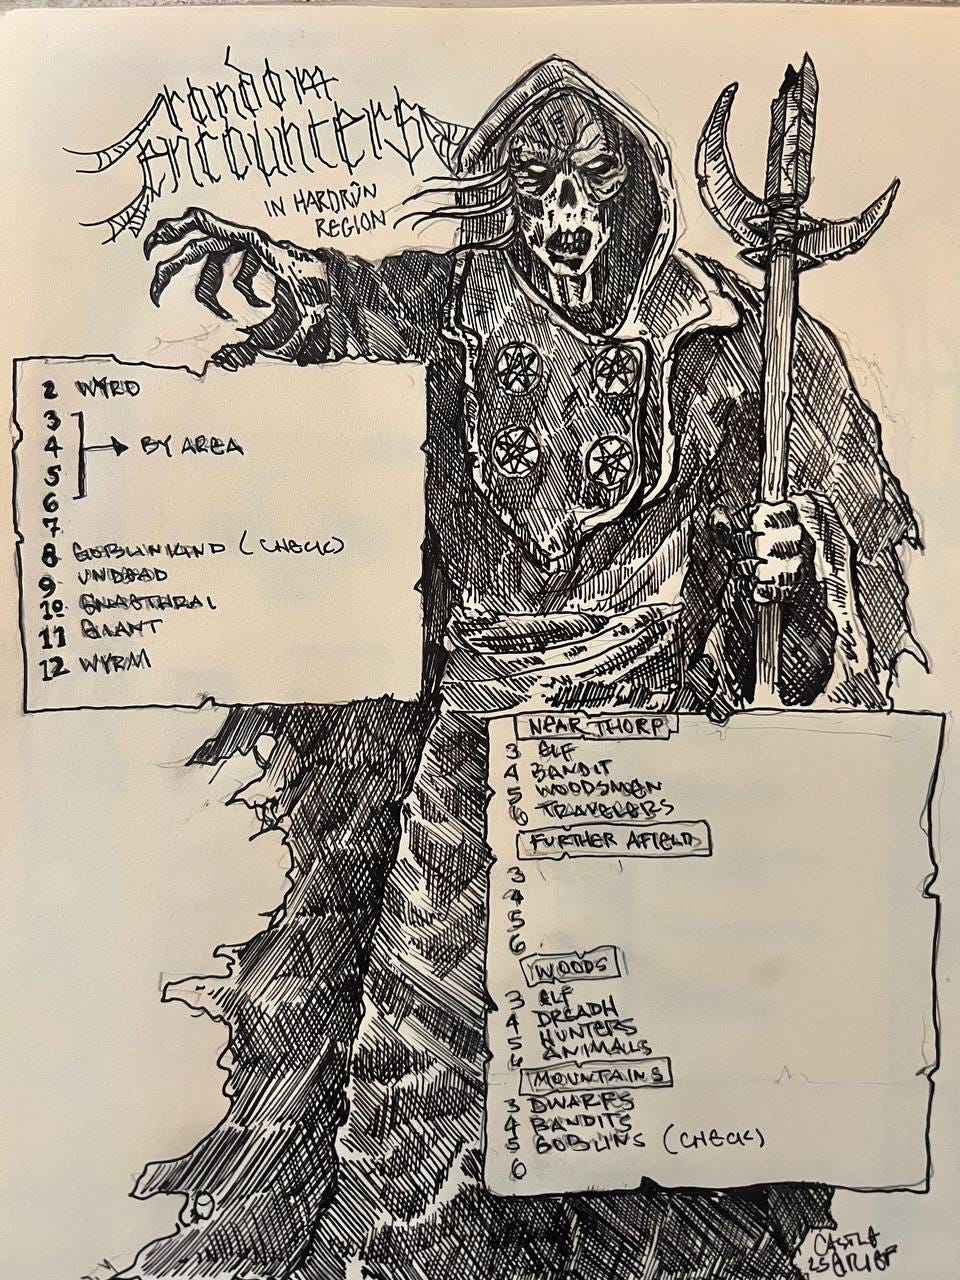 random
encounters
IN HARDRŪN
REGION
2 WYRD
3
4 BY AREA
5
6
7
8 GOBLINKIND (CHECK)
9 UNDEAD
10 GNASTHRAL
11 GIANT
12 WYRM
NEAR THORP
3 ELF
4 BANDIT
5 WOODSMEN
6 TRAVELERS
FURTHER AFIELD
3
4
5
6
WOODS
3 ELF
4 DREADH
5 HUNTERS
6 ANIMALS
MOUNTAINS
3 DWARFS
4 BANDITS
5 GOBLINS (CHECK)
6